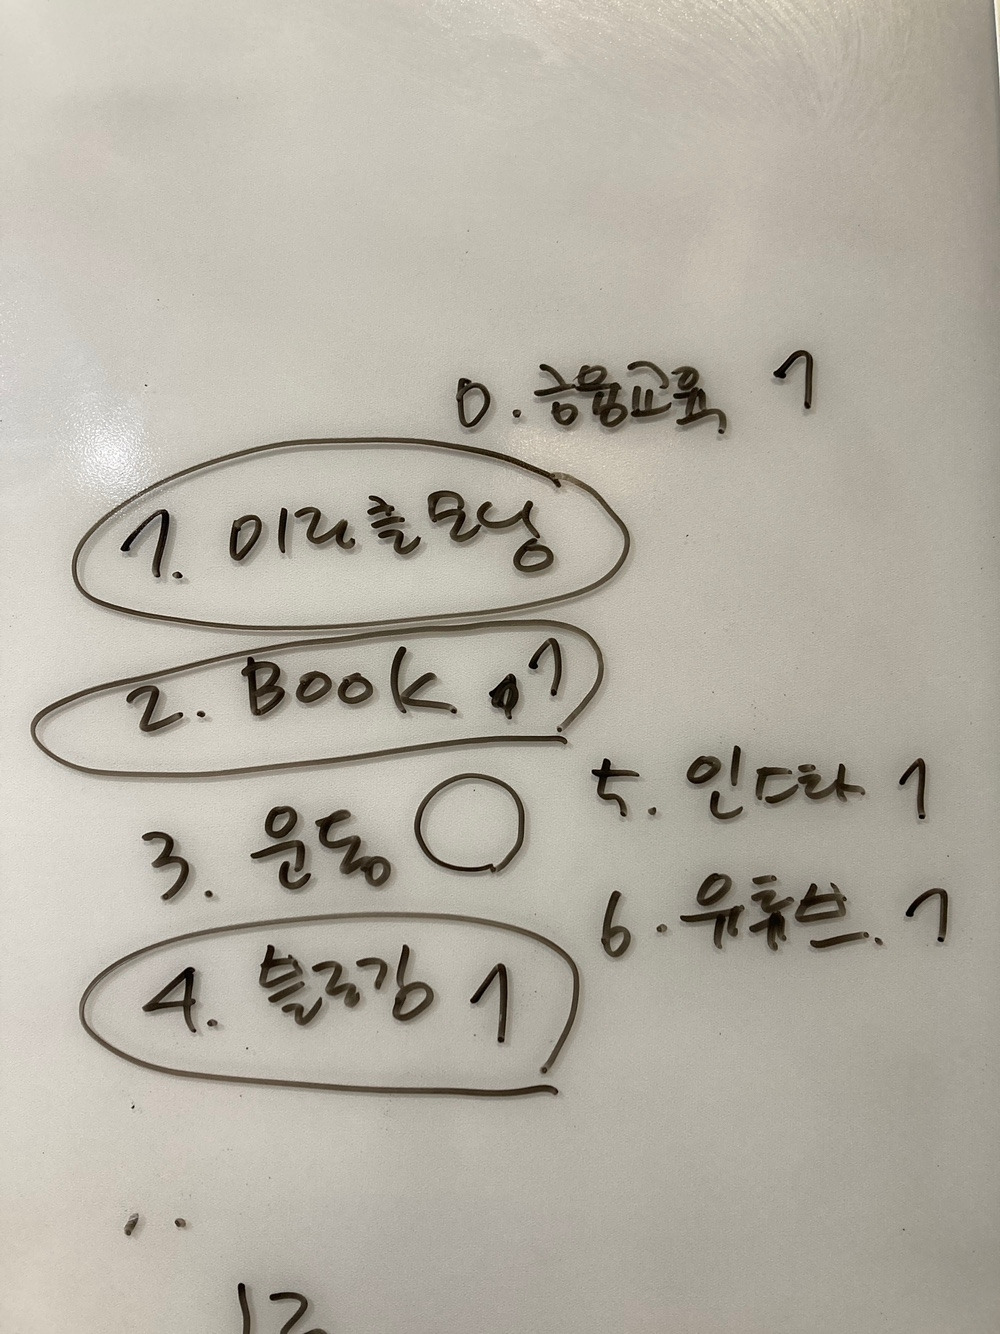 0. 금융교육 1
1. 미라클모닝
2. Book 1
3. 운동
4. 블로깅 1
5. 인스타 1
6. 유튜브. 1